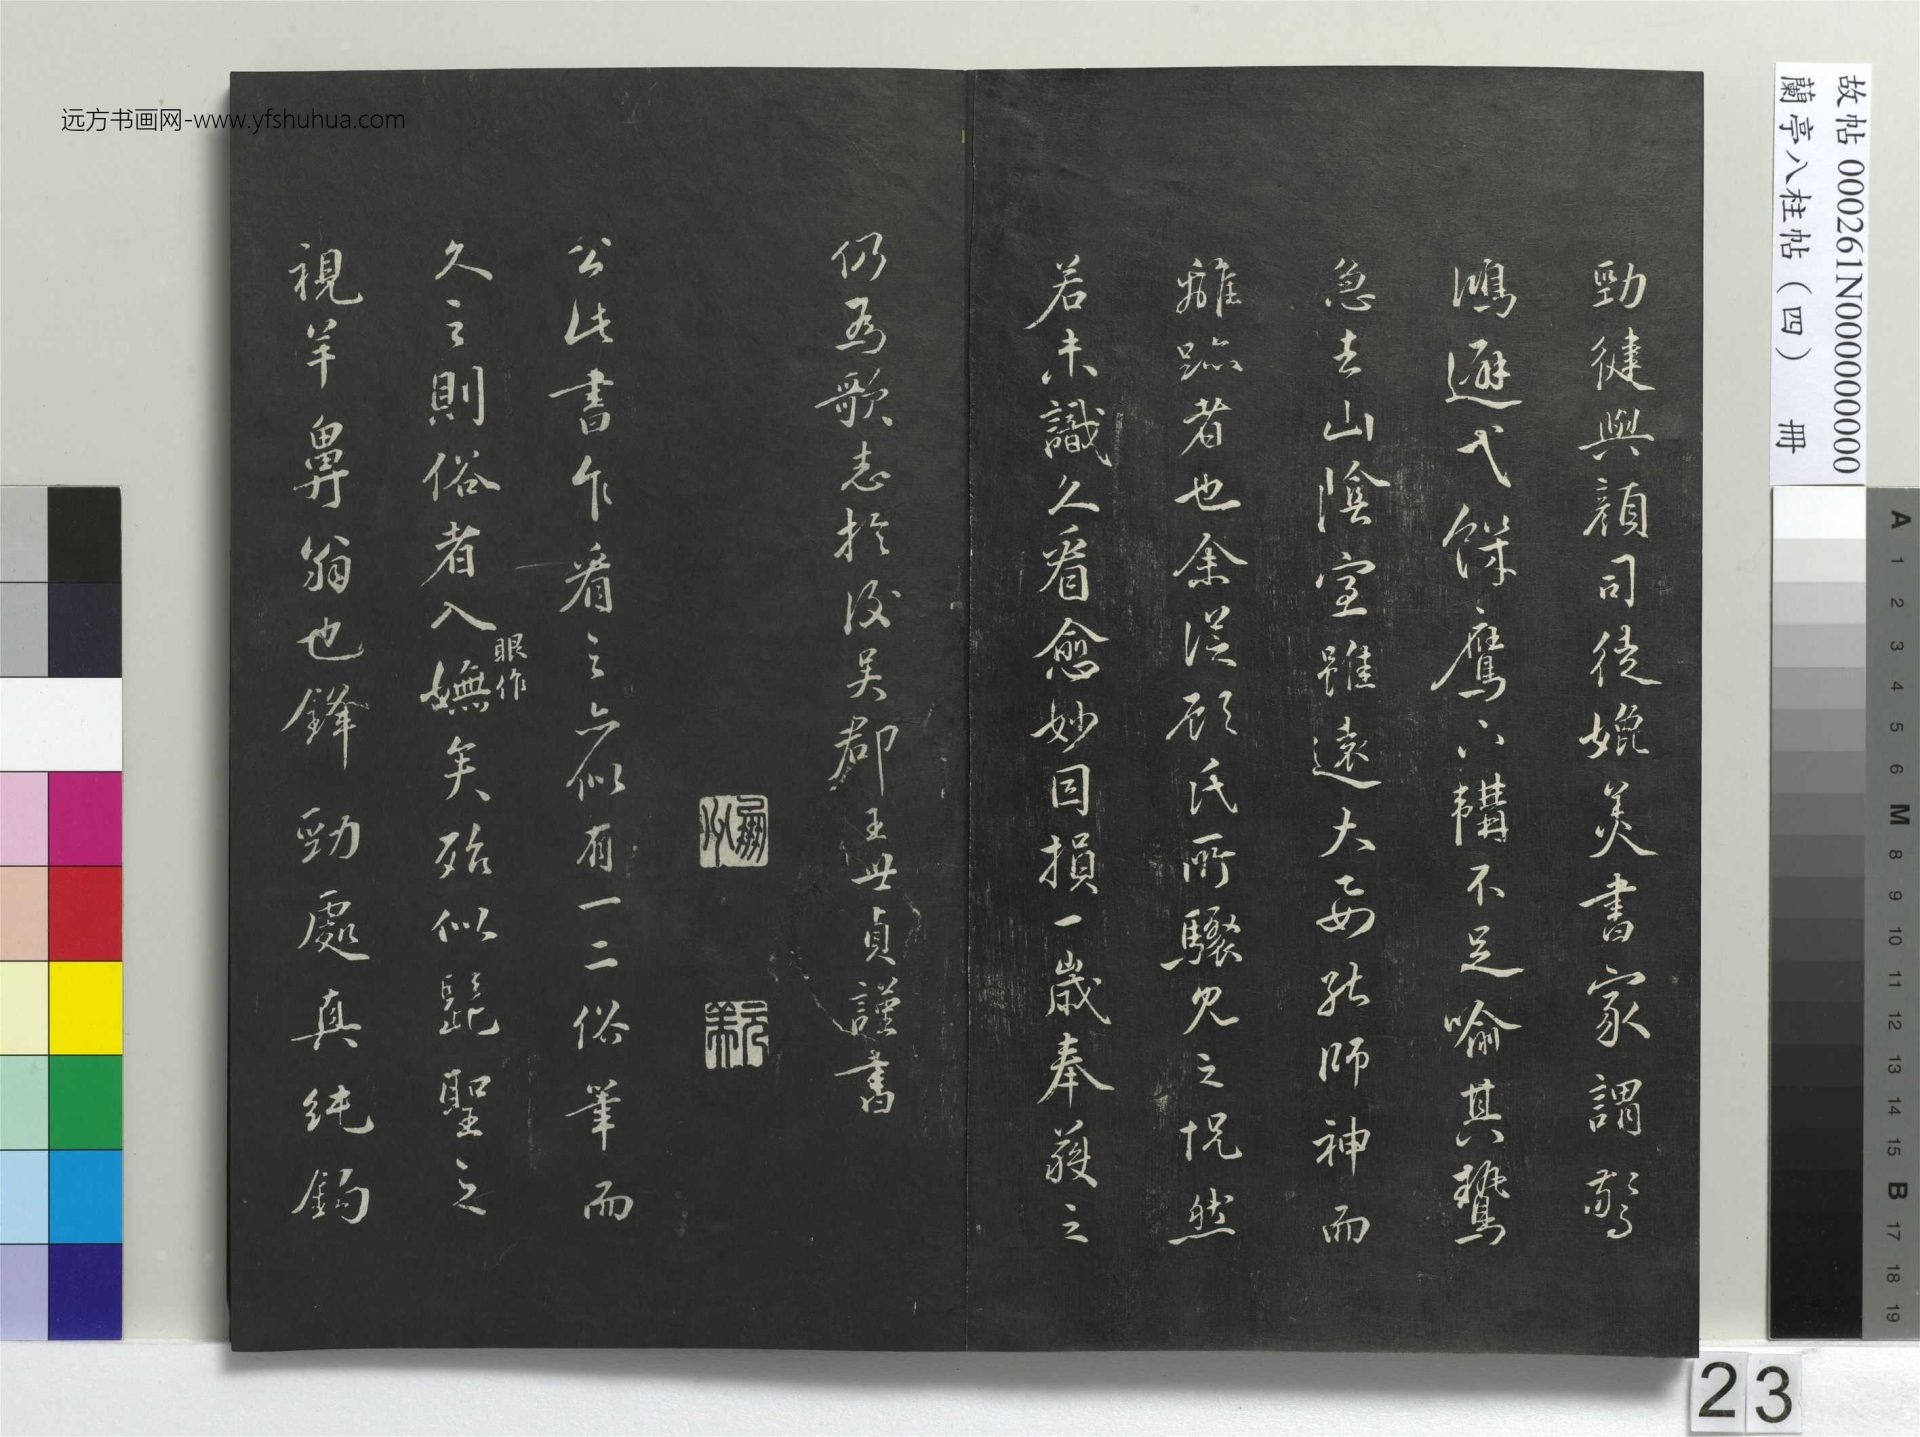 远方书画网-www.yfshuhua.com
故帖 000261N000000000
蘭亭八柱帖（四） 冊
勁健與顏司徒媲美書家謂驚
鴻避弋飢鷹下韝不足喻其鷙
急去山陰室雖遠大要能師神而
離跡者也余從顧氏所驟見之怳然
若未識久看愈妙因損一歲奉獲之
仍為歌志於後吳郡王世貞謹書
公此書乍看之亦似有一二俗筆而
久之則俗者入嫵矣殆似髭聖之
眼作
視羊鼻翁也鋒勁處真純鉤
A 1 2 3 4 5 6 M 8 9 10 11 12 13 14 15 B 17 18 19
23